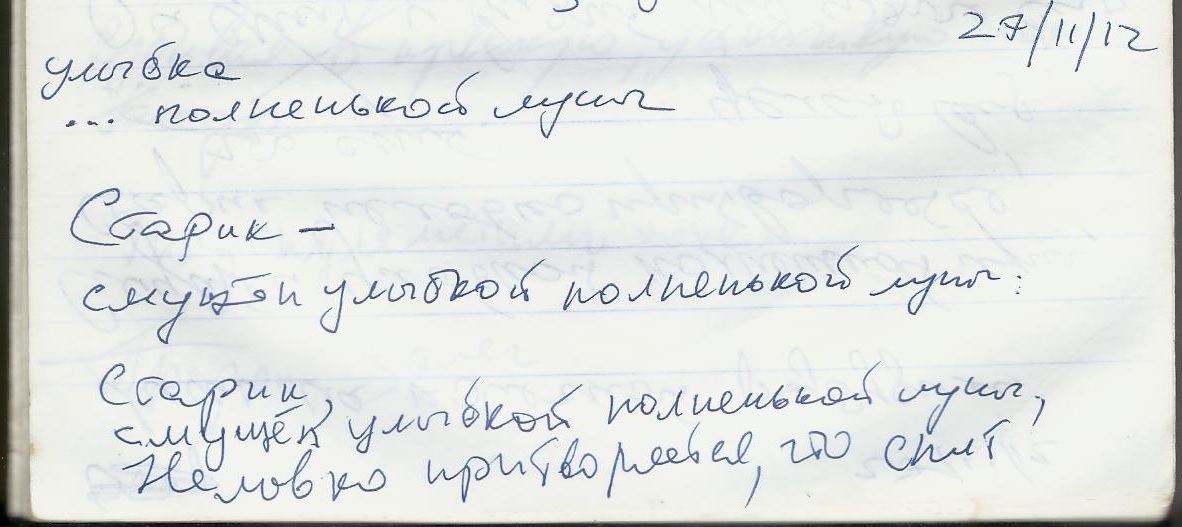 27/11/12
улыбка
... полненькой луны
Старик –
смущён улыбкой полненькой луны.
Старик,
смущён улыбкой полненькой луны,
Неловко притворяется, что спит